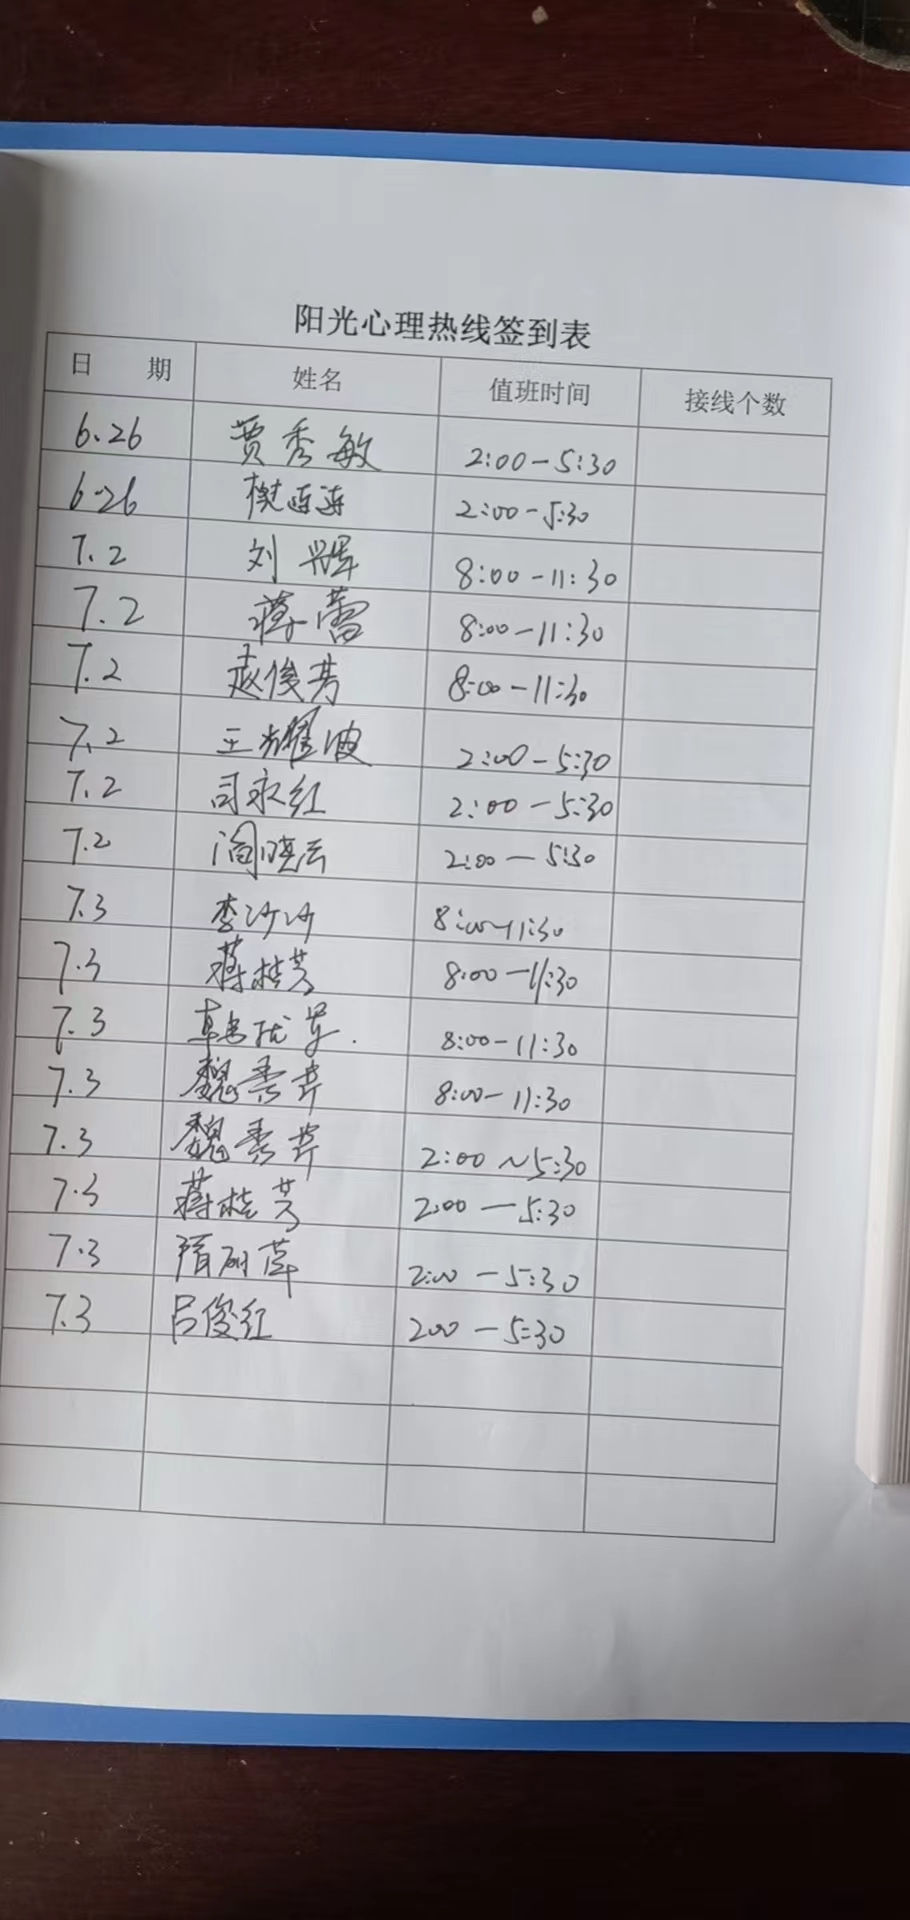 阳光心理热线签到表
日 期 姓名 值班时间 接线个数
6.26 贾秀敏 2:00-5:30
6.26 连连 2:00-5:30
7.2 刘 8:00-11:30
7.2 蒋蕾 8:00-11:30
7.2 赵俊芳 8:00-11:30
7.2 王耀波 2:00-5:30
7.2 司永红 2:00-5:30
7.2 阎晓云 2:00-5:30
7.3 李沙沙 8:00-11:30
7.3 蒋桂芳 8:00-11:30
7.3 韩 8:00-11:30
7.3 魏秀芹 8:00-11:30
7.3 魏秀芹 2:00~5:30
7.3 蒋桂芳 2:00-5:30
7.3 隋丽萍 2:00-5:30
7.3 吕俊红 200-5:30